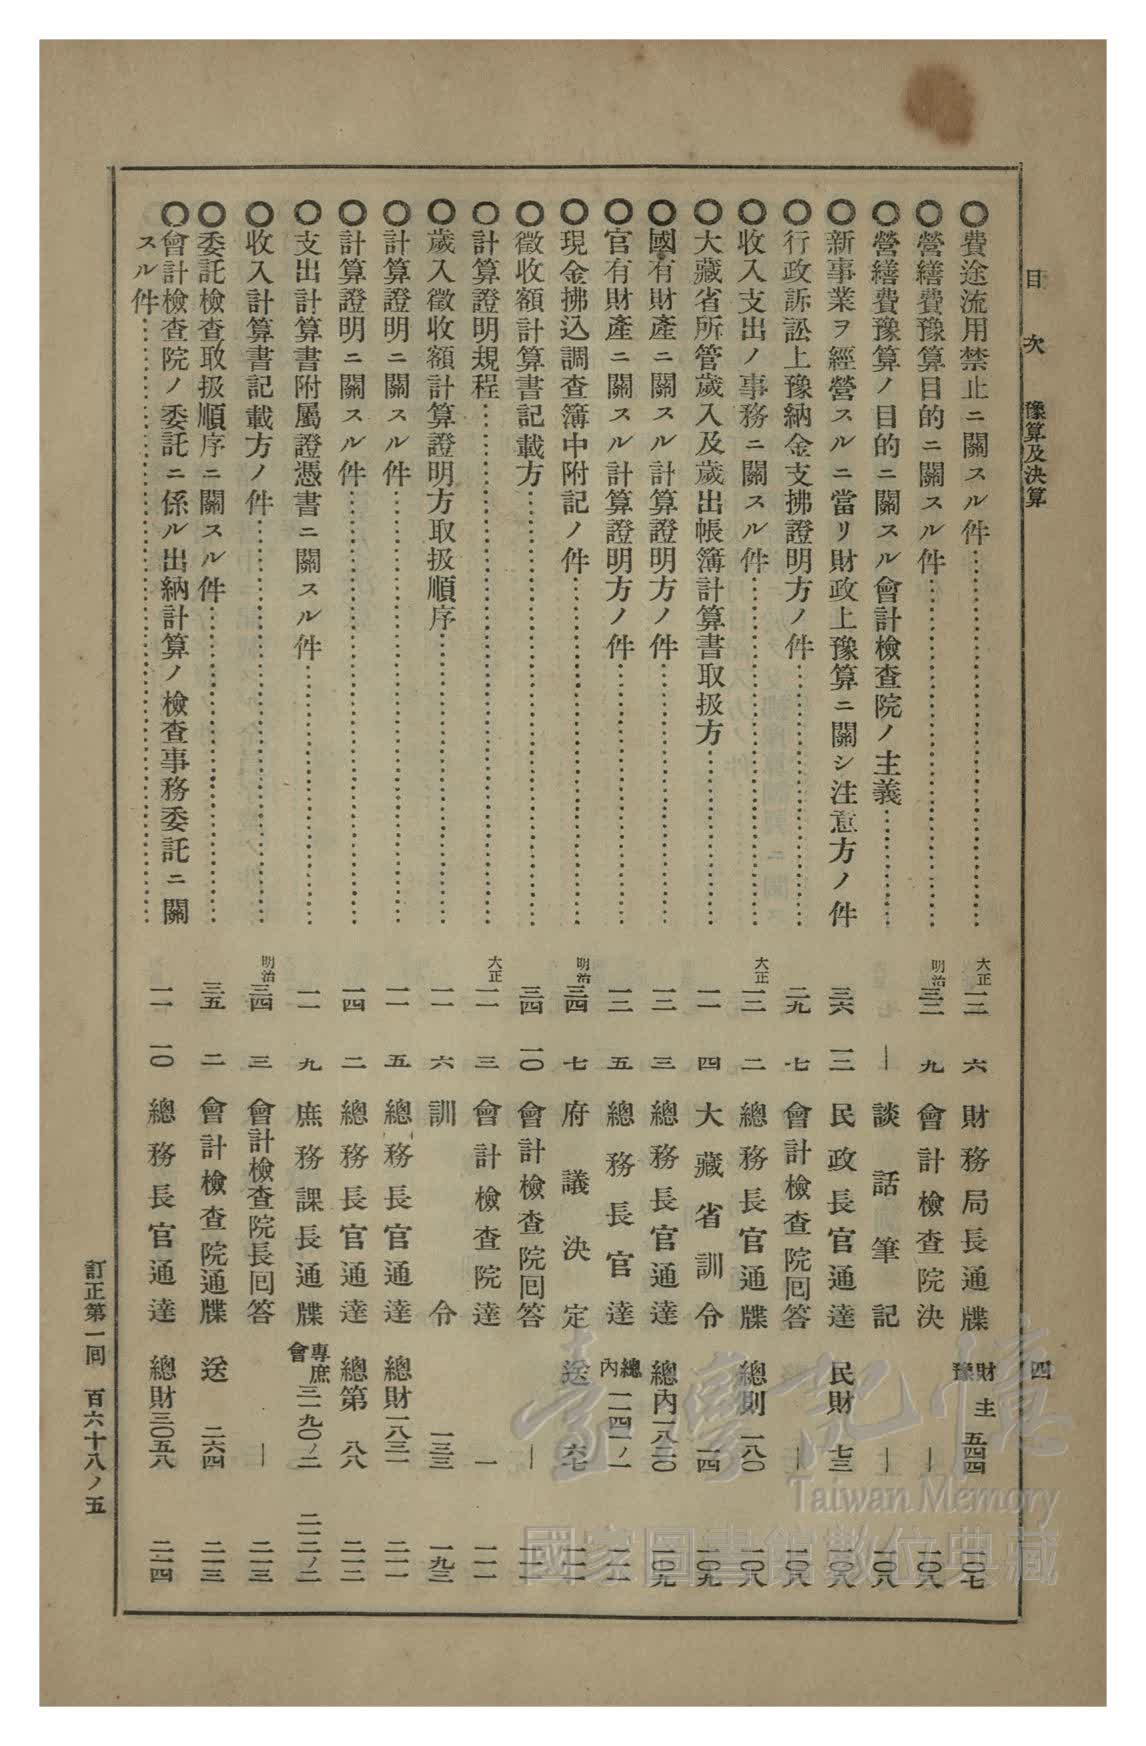 目次 豫算及決算 四
◯費途流用禁止ニ關スル件 大正一二 六 財務局長通牒 財豫主五四四 二〇七
◯營繕費豫算目的ニ關スル件 明治三二 九 會計檢查院決 — 二〇八
◯營繕費豫算ノ目的ニ關スル會計檢查院ノ主義 — 談話筆記 — 二〇八
新事業ヲ經營スルニ當リ財政上豫算ニ關シ注意方ノ件 三六 一二 民政長官通達 民財七三 二〇八
◯行政訴訟上豫納金支拂證明方ノ件 二九 七 會計檢查院囘答 — 二〇八
◯收入支出ノ事務ニ關スル件 大正一二 二 總務長官通牒 總則一八〇 二〇八
◯大藏省所管歲入及歲出帳簿計算書取扱方 一一 四 大藏省訓令 一四 二〇九
◯國有財產ニ關スル計算證明方ノ件 一二 三 總務長官通達 總內一八二〇 二〇九
◯官有財產ニ關スル計算證明方ノ件 一二 五 總務長官達 總內一一四一ノ一
◯現金拂込調查簿中附記ノ件 明治三四 七 府議決定 送六七
◯徵收額計算書記載方 三四 一〇 會計檢查院囘答 —
◯計算證明規程 大正一一 三 會計檢查院達 一 二一一
◯歲入徵收額計算證明方取扱順序 一一 六 訓令 一三三 一九三
◯計算證明ニ關スル件 一一 五 總務長官通達 總財一八三一 二一一
◯計算證明ニ關スル件 一四 二 總務長官通達 總第八八 二一二
◯支出計算書附屬證憑書ニ關スル件 一一 九 庶務課長通牒 專庶會三一九〇ノ二 二一二ノ二
◯收入計算書記載方ノ件 明治三四 三 會計檢查院長囘答 — 二一三
◯委託檢查取扱順序ニ關スル件 三五 二 會計檢查院通牒 送二六四 二一三
◯會計檢查院ノ委託ニ係ル出納計算ノ檢查事務委託ニ關
スル件 一一 一〇 總務長官通達 總財三〇五八 二一四
訂正第一囘 百六十八ノ五
臺灣記憶
Taiwan Memory
國家圖書館數位典藏